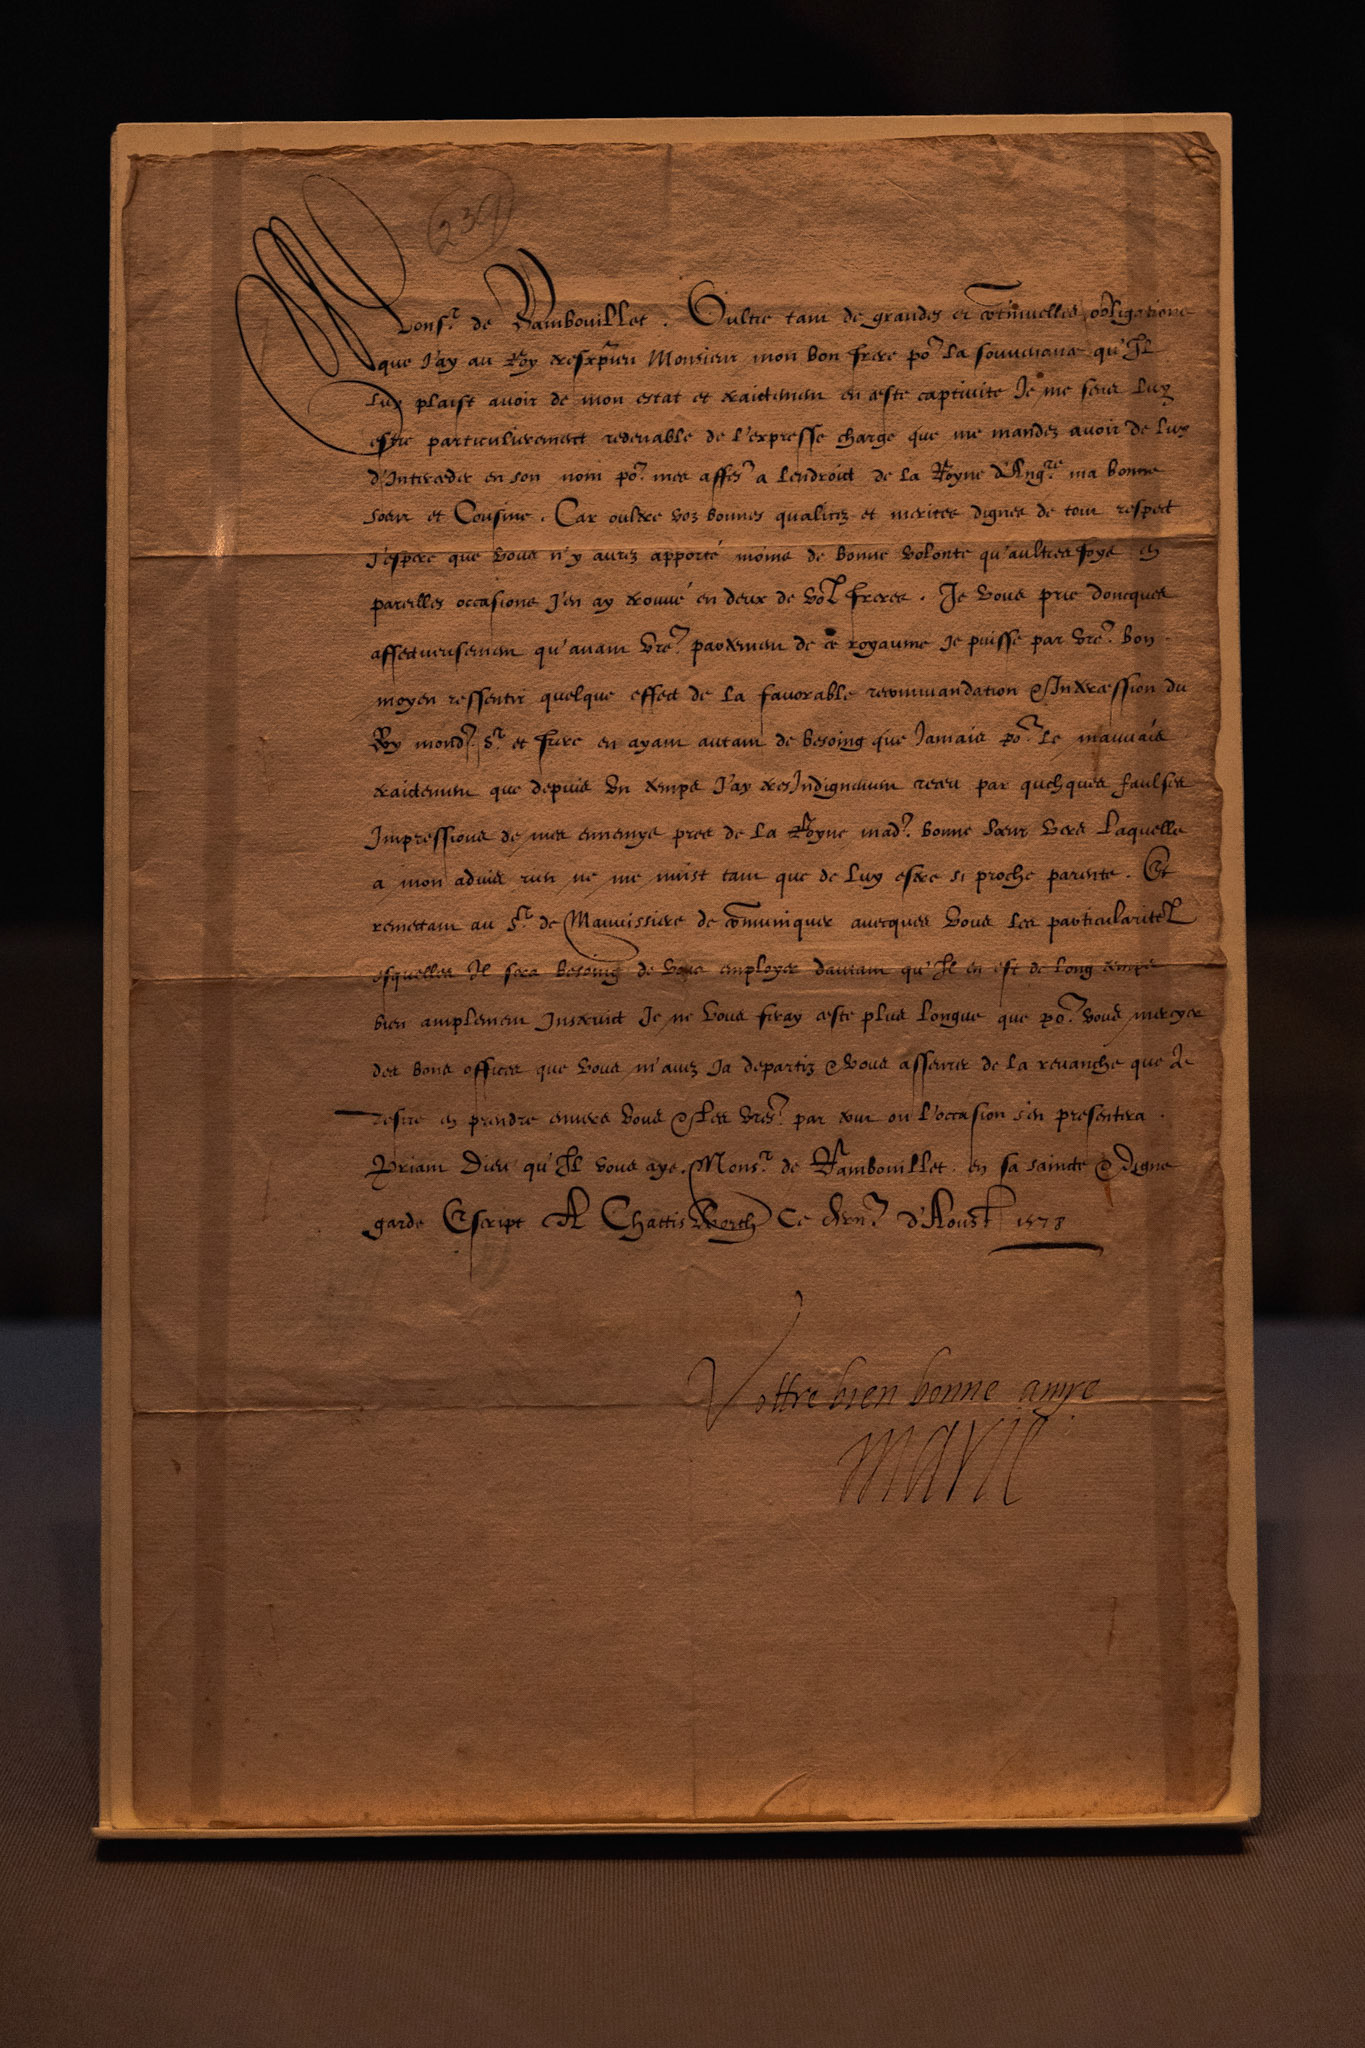 239
Mons.^r de Rambouillet . Oultre tant de grandes et cōtinuelles obligations
que J'ay au Roy Monsieur mon bon frere po^r la souvenance qu'Il
luy plaist avoir de mon estat et traictement en ceste captivite Je me sens luy
estre particulierement redevable de l'expresse charge que me mandez avoir de luy
d'Interceder en son nom po^r mes aff^res a lendroict de la Royne d'Ang^re ma bonne
soeur et Cousine . Car oultre voz bonnes qualitez et merites dignes de tout respect
J'espere que vous n'y aurez apporté moins de bonne volonte qu'aultresfoys en
pareilles occasions J'en ay trouvé en deux de voz freres . Je vous prie doncques
affectueusement qu'avant vre^ partement de ce royaume Je puisse par vre^ bon
moyen ressentir quelque effect de la favorable recommandation & Intercession du
Roy mond^ S^r et frere en ayant autant de besoing que Jamais po^r le mauvais
traictement que depuis un temps J'ay tresIndignement receu par quelques faulses
Impressions de mes ennemys pres de la Royne mad^ bonne soeur vers laquelle
a mon advis rien ne me nuist tant que de luy estre si proche parente . Et
remettant au S^r de Mauvissiere de cōmuniquer avecques vous les particularitez
esquelles Il sera besoing de vous employer dautant qu'Il en est de long temps
bien amplement Instruict Je ne vous feray ceste plus longue que po^r vous mercyer
des bons offices que vous m'avez Ja departiz & vous asseurer de la revanche que Je
desire en prendre envers vous & les vres^ par tout ou l'occasion s'en presentera .
Priant Dieu qu'Il vous aye . Mons.^r de Rambouillet . en sa saincte & digne
garde Escript A Chattisworth Ce dern^ d'Aoust 1578
Vottre bien bonne amye
Marie